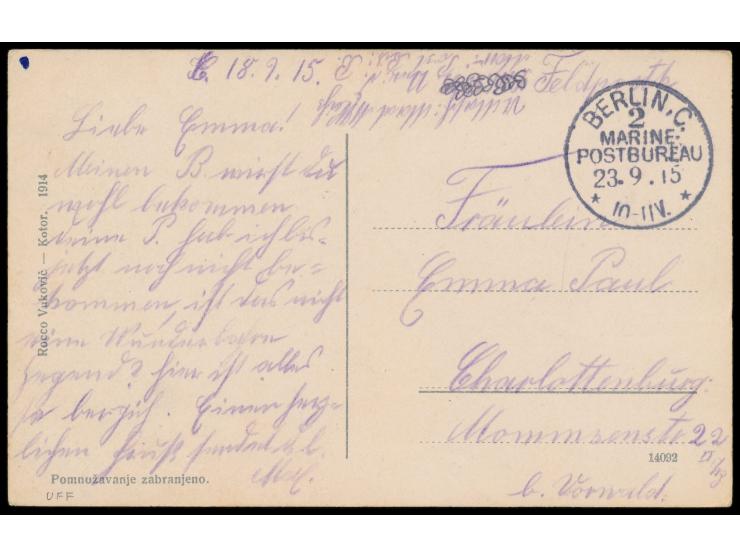 18.9.15.
Feldpostk
Liebe Emma!
Meinen B. wirst du
wohl bekommen
deine P. hab ich bis-
jetzt noch nicht be-
kommen, ist das nicht
eine Wunderbare
Gegend? hier ist alles
so bergich. Einen herz-
lichen Gruß sendet d. l.
Rocco Vuković — Kotor. 1914
Pomnožavanje zabranjeno.
UFF
BERLIN, C.
2
MARINE-
POSTBUREAU
23.9.15
* 10-11V. *
Fräulein
Emma Paul
Charlottenburg.
Mommsenstr 22
14092
b. Vorwald.